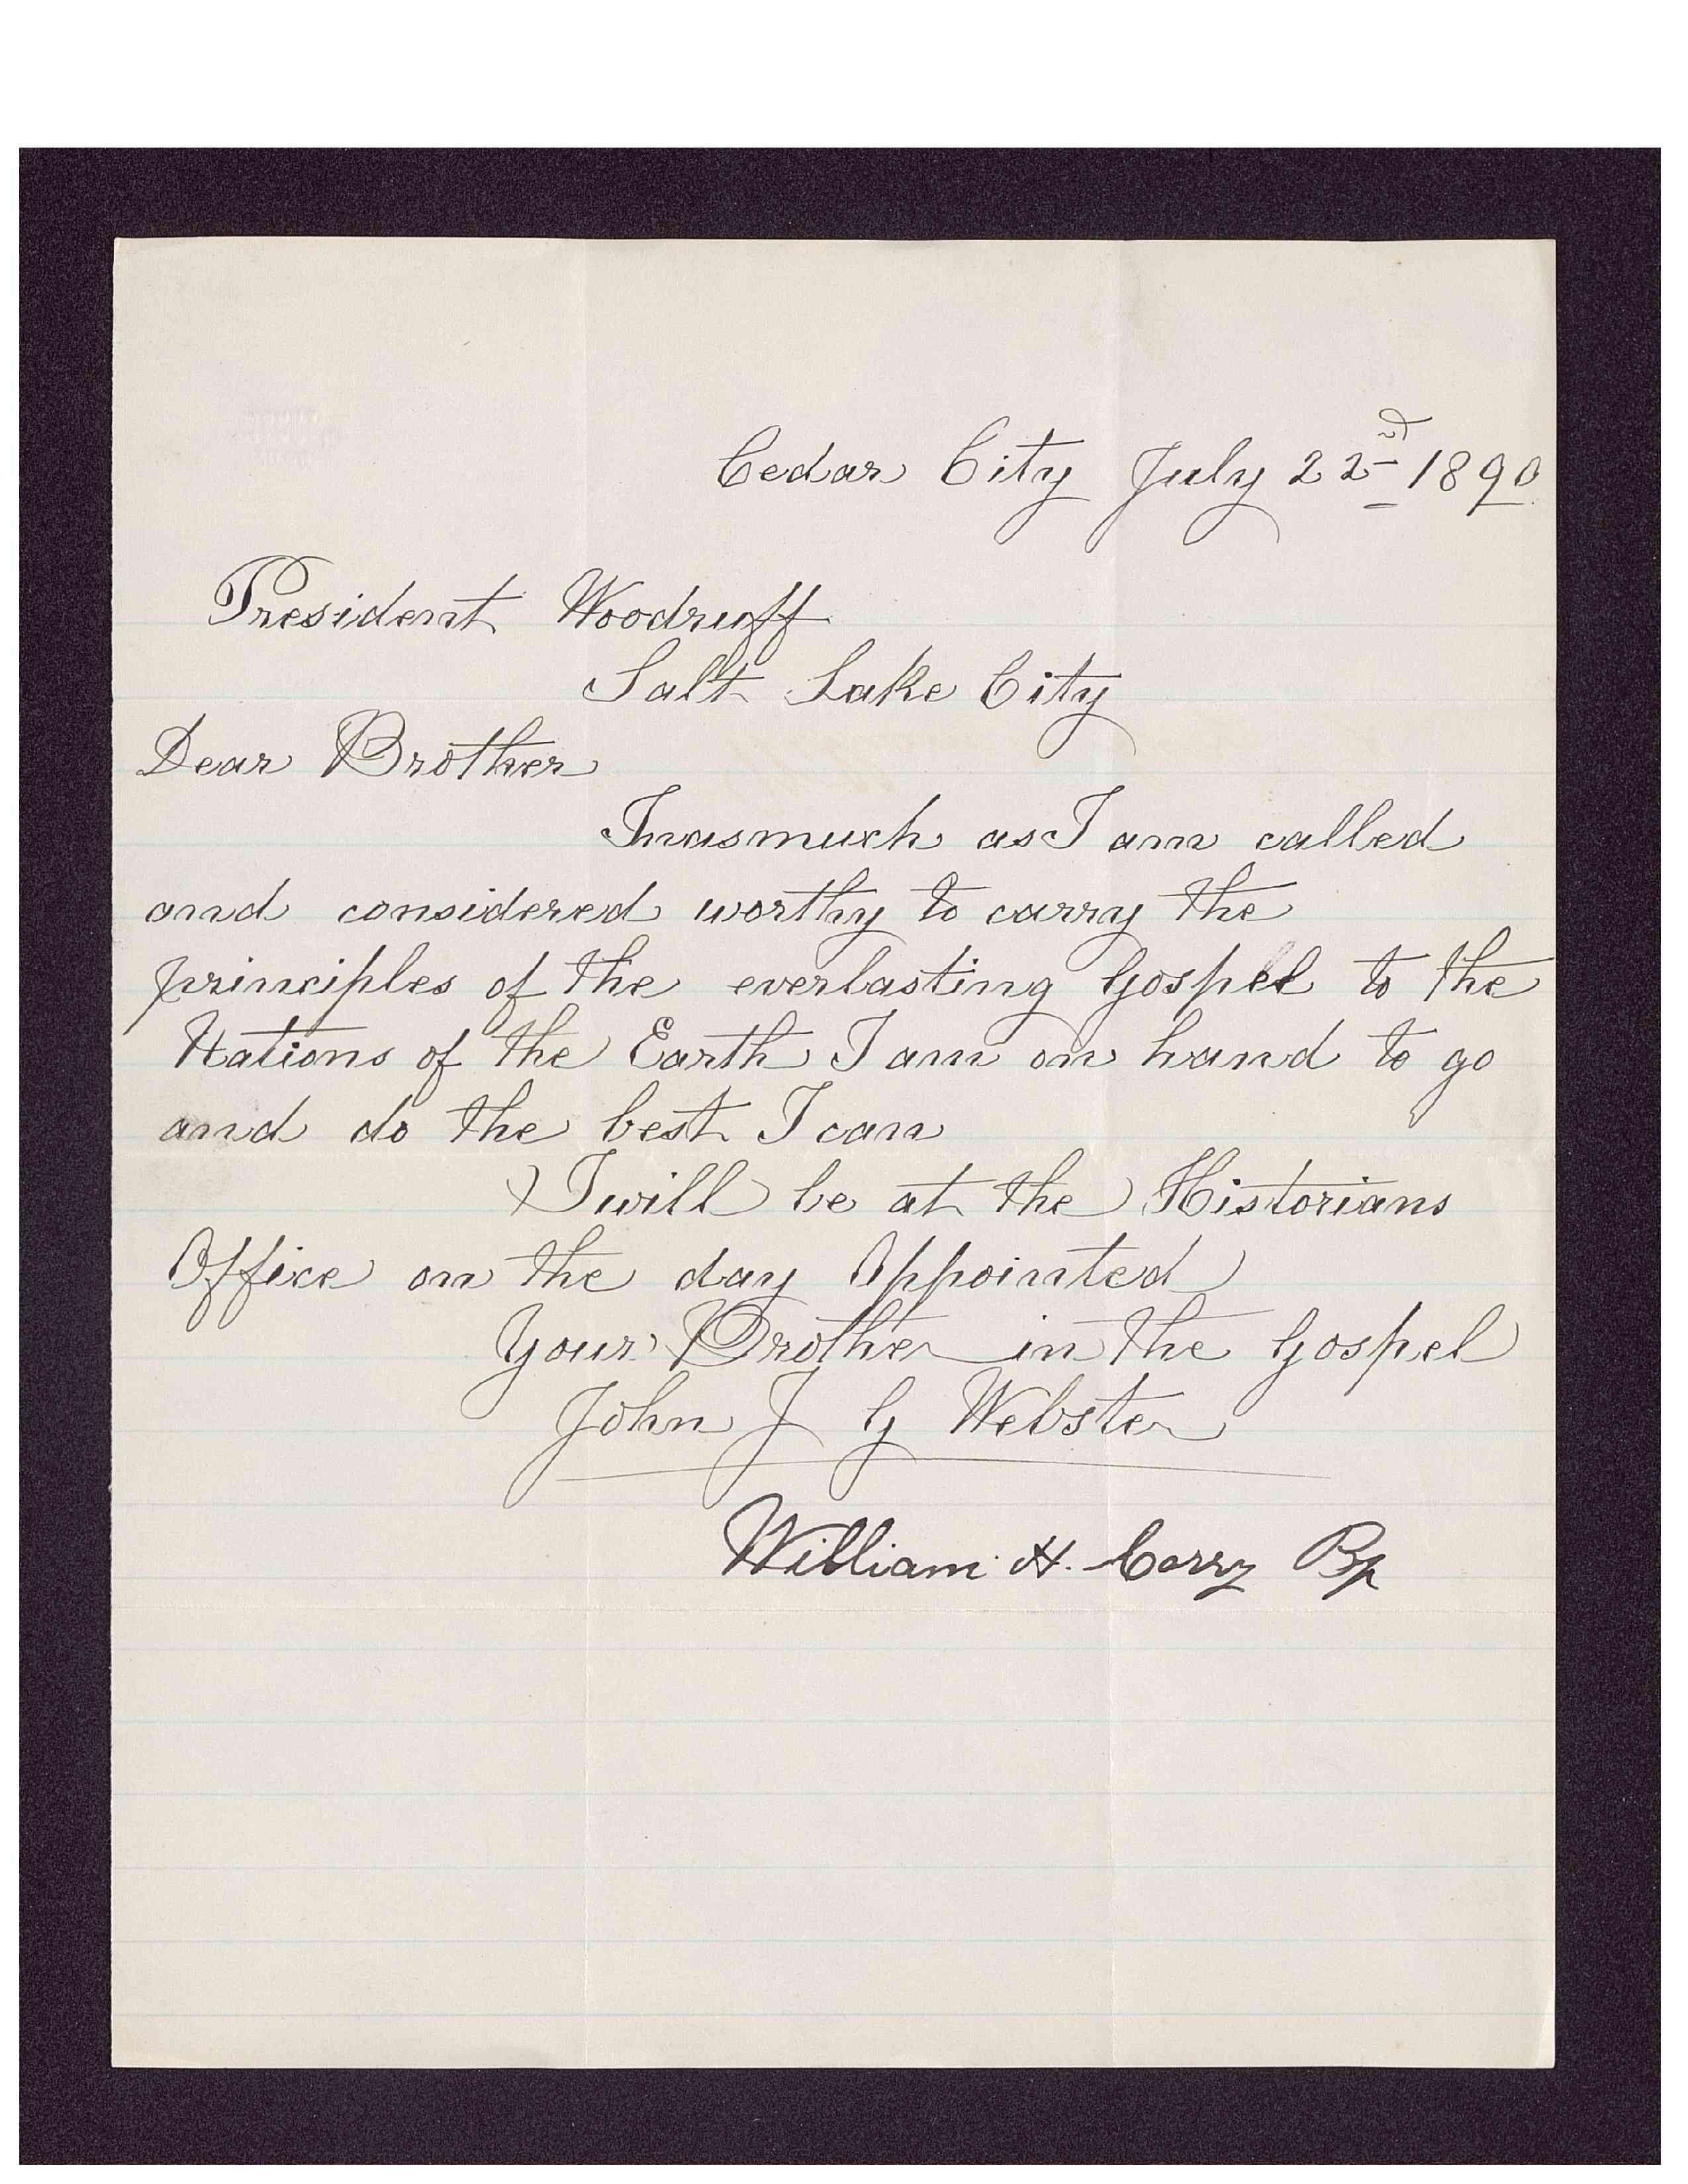 Cedar City July 22nd 1890
President Woodruff
Salt Lake City
Dear Brother
Inasmuch as I am called
and considered worthy to carry the
principles of the everlasting Gospel to the
Nations of the Earth I am on hand to go
and do the best I can
I will be at the Historians
Office on the day Appointed
Your Brother in the Gospel
John J G Webster
William H. Corry Bp